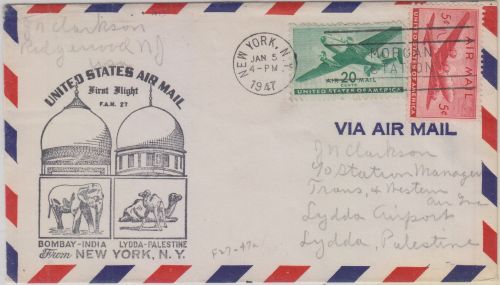 J N Clarkson
Ridgewood NJ
UNITED STATES AIR MAIL
First Flight
F.A.M. 27
BOMBAY-INDIA LYDDA-PALESTINE
From NEW YORK, N.Y.
NEW YORK, N.Y.
JAN 5
4-PM
1947
MORGAN
STATION
20
AIR MAIL
CENTS
UNITED STATES OF AMERICA
5¢ AIR MAIL 5¢
UNITED STATES OF AMERICA
VIA AIR MAIL
J N Clarkson
c/o Station Manager
Trans. & Western
Air Inc
Lydda Airport
Lydda, Palestine
F27-47a